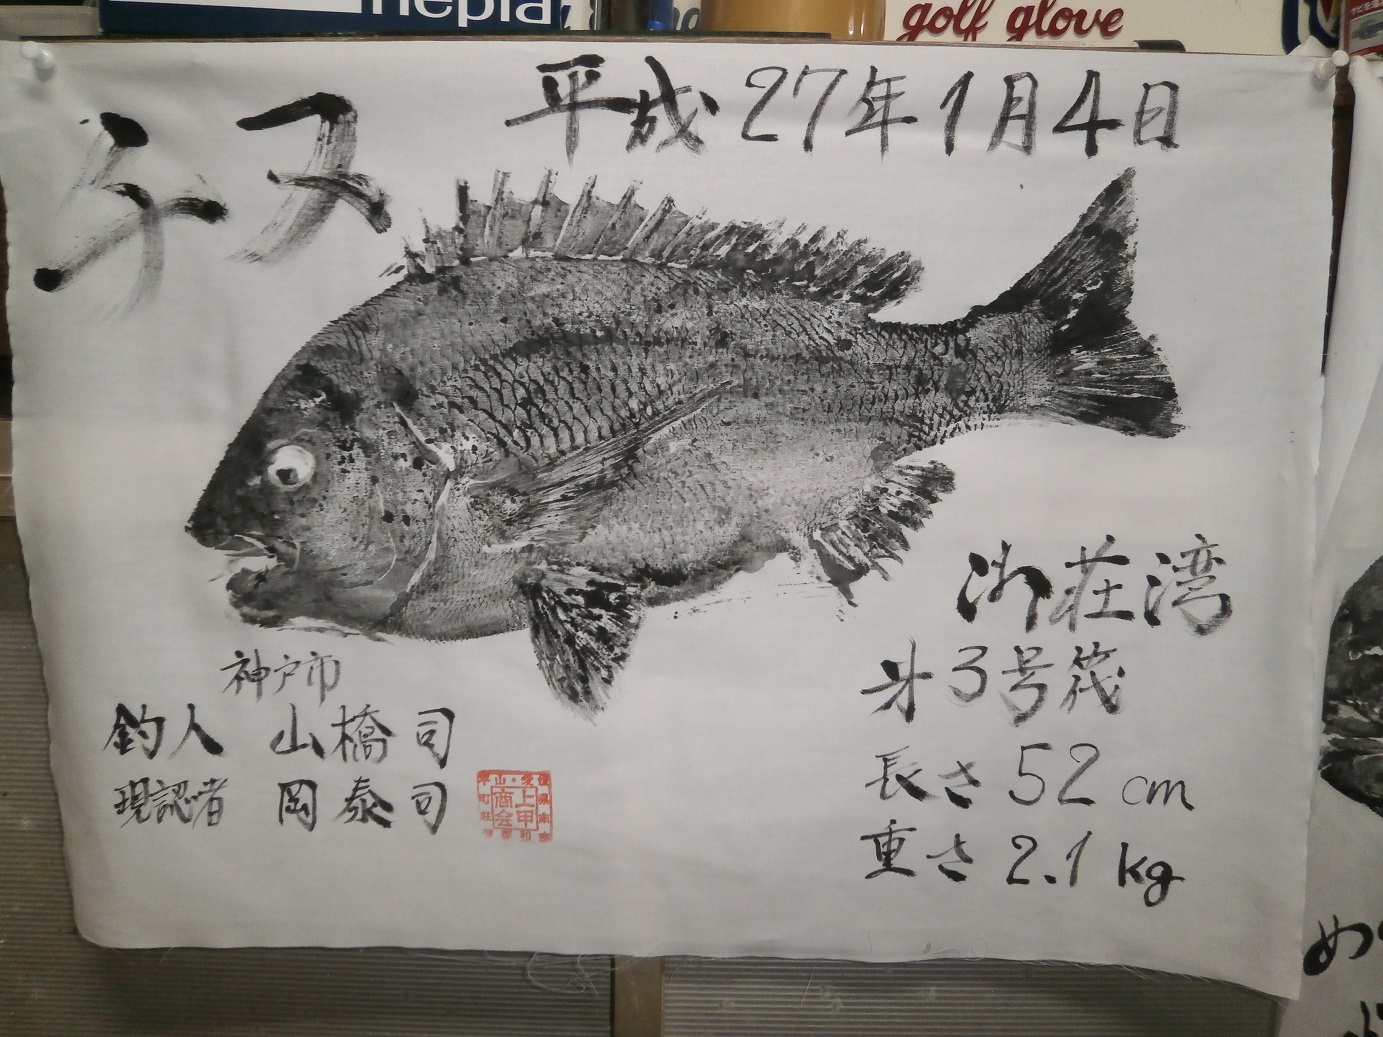 nepia
golf glove
平成27年1月4日
チヌ
御荘湾
才3号筏
長さ52cm
重さ2.1kg
神戸市
釣人 山橋司
現認者 岡泰司
上甲
商会
め